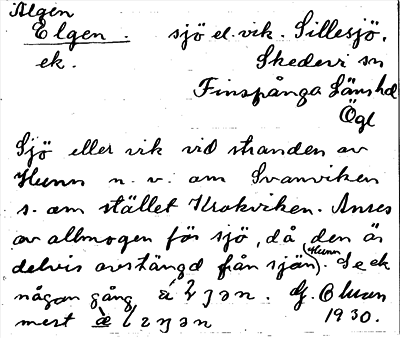 Älgen
Elgen. sjö el. vik. Sillesjö.
ek. Skedevi sn
Finspånga Länshd
Ögl
Sjö eller vik vid stranden av
Hunn n. v. om Svanviken
s. om stället Krokviken. Anses
av allmogen för sjö, då den är
delvis avstängd från sjön (Hunn). Se ek
någon gång
mest 1930.